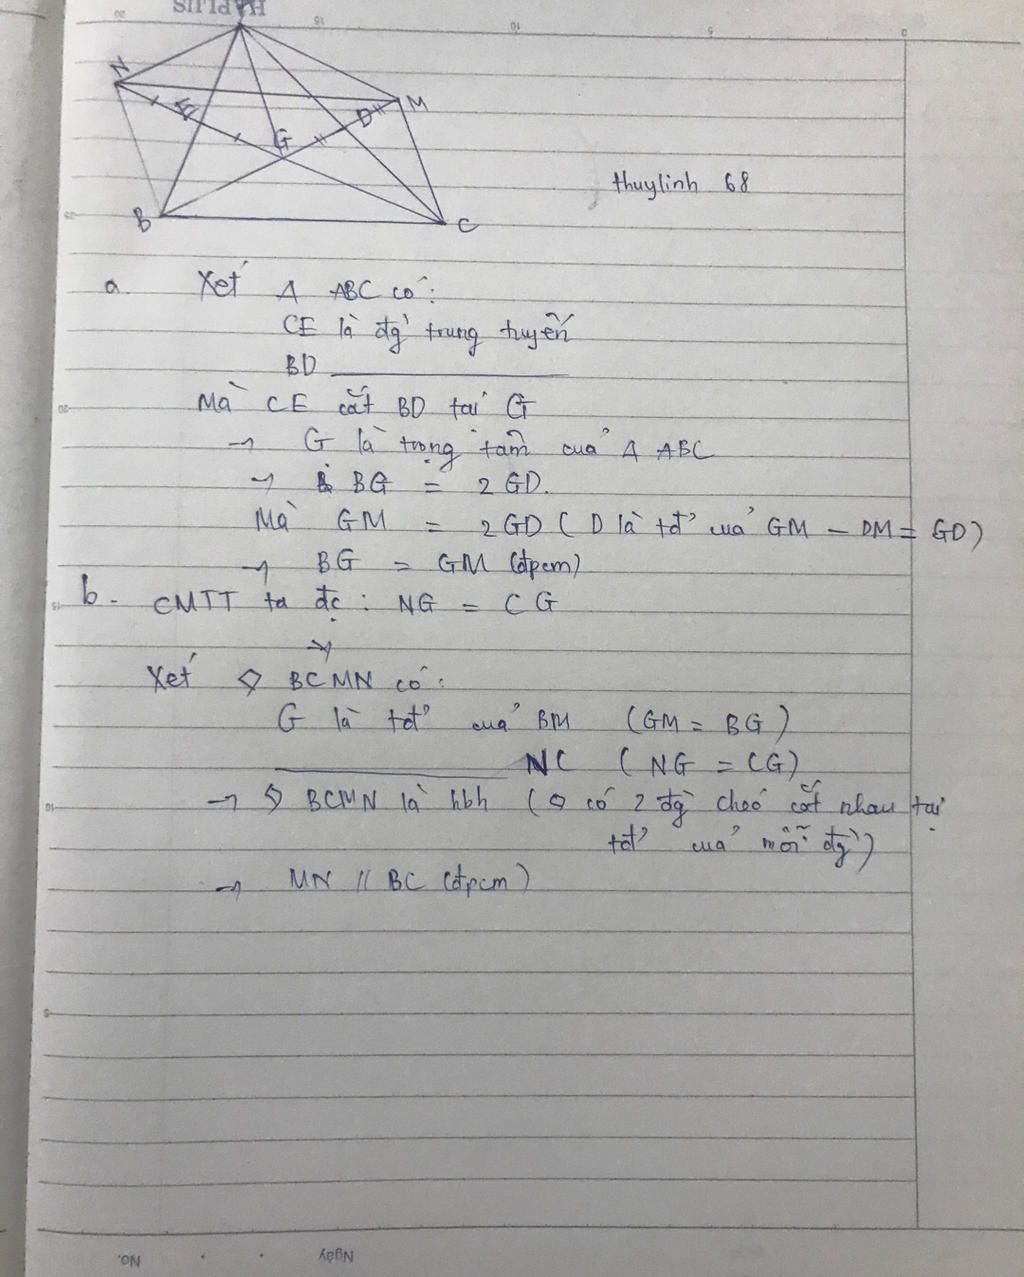 HAPLUS
20 15 10 5 0
N
M
E
D
G
B
C
thuylinh 68
a. Xét Δ ABC có:
CE là đg` trung tuyến
BD
Mà CE cắt BD tại G
→ G là trọng tâm của Δ ABC
→ BG = 2 GD.
Mà GM = 2 GD ( D là tđ' của GM - DM = GD )
→ BG = GM (đpcm)
b. CMTT ta đc : NG = CG
→
Xét ◇ BCMN có:
G là tđ' của BM ( GM = BG )
NC ( NG = CG )
→ ◇ BCMN là hbh ( ◇ có 2 đg` chéo cắt nhau tại
tđ' của mỗi đg` )
→ MN // BC (đpcm)
No. Ngày